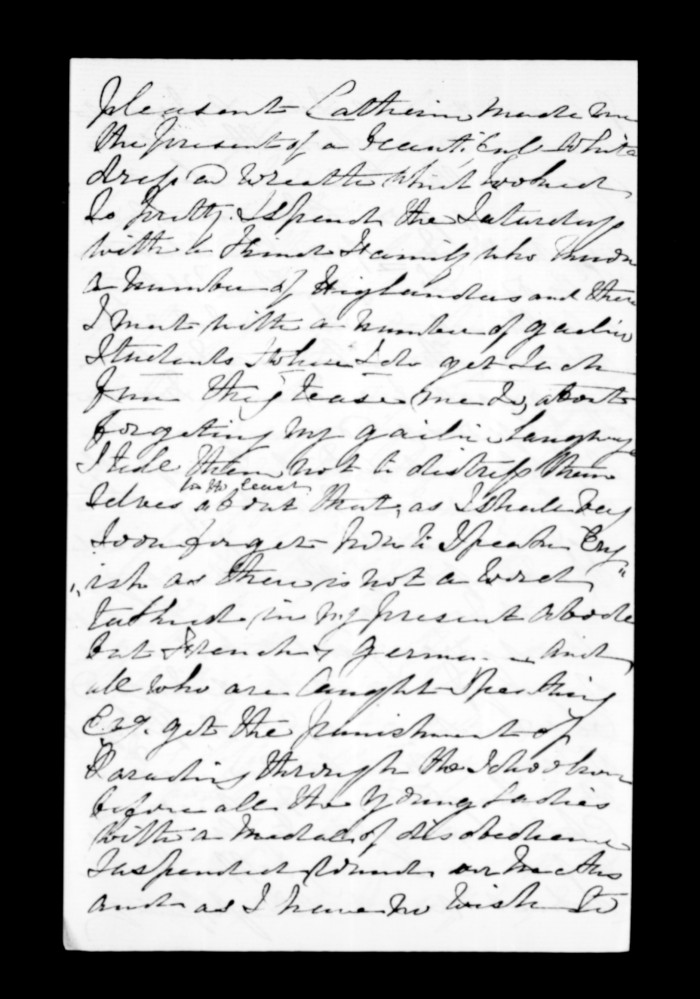 pleasant Catherine made me
the present of a beautiful white
dress and wreath which looked
so pretty. I spend the Saturdays
with a kind family who know
a number of Highlanders and there
I meet with a number of gaelic
Students where I do get such
fun they tease me so, about
forgeting my gaelic Language
I tell them not to distress them
selves about that, as I shall very
in the least
soon forget how to speak Eng
"ish as there is not a word "
talked in my present abode
but French & german and
all who are caught speaking
Eng. get the punishment of
Parading through the School room
before all the Young Ladies
with a medal of disobedience
suspended round our necks
and as I have no wish to